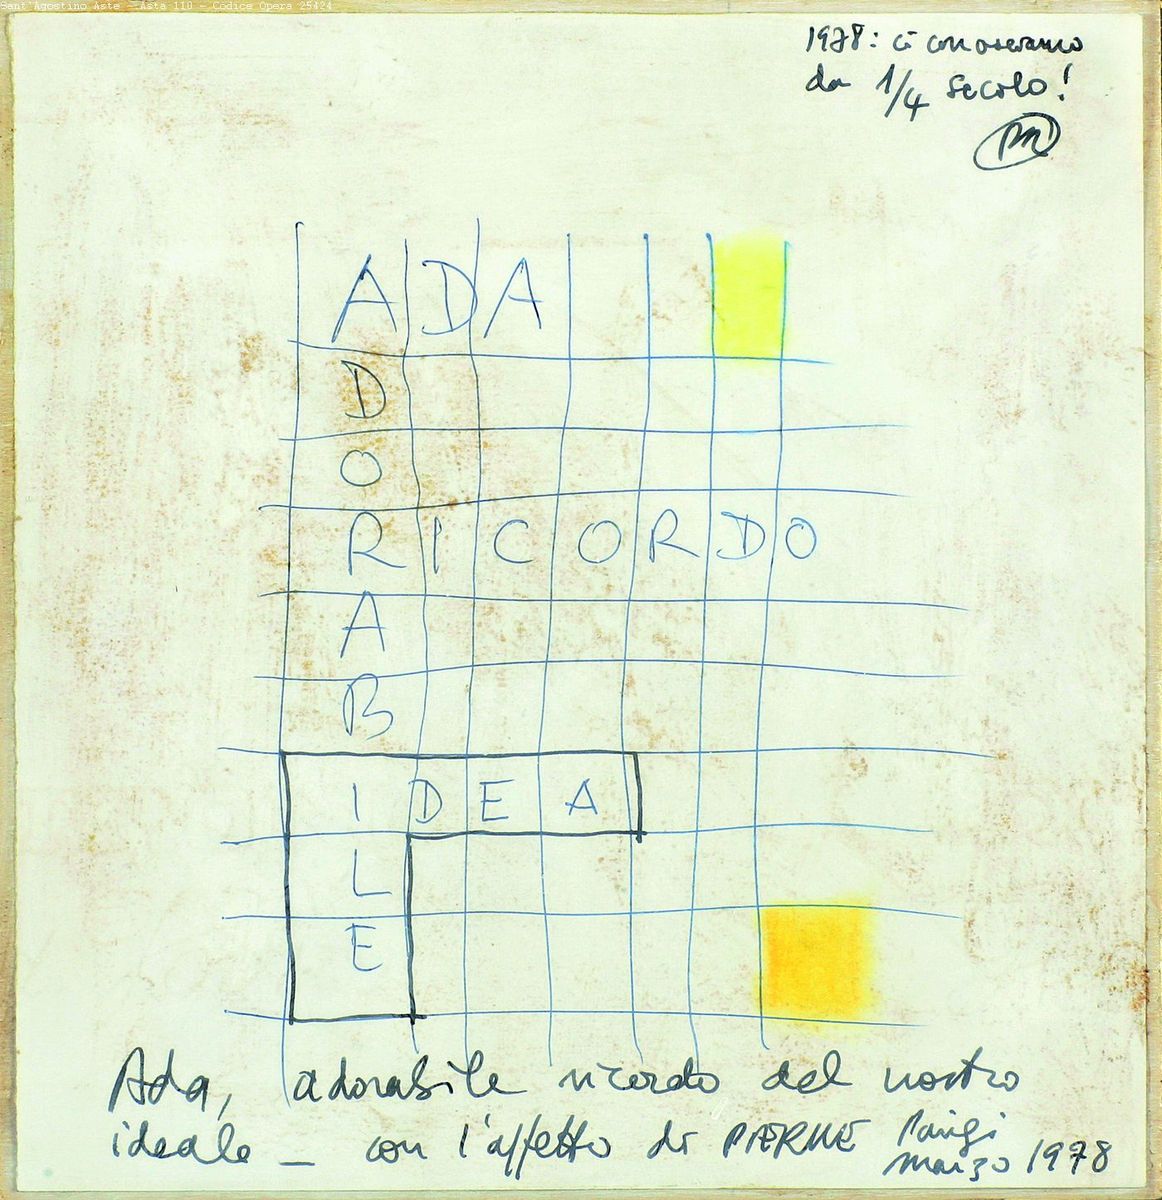 Sant'Agostino Aste - Asta 110 - Codice Opera 25424
1978: ci conosciamo
da 1/4 secolo!
PM
ADA
D
O
RICORDO
A
B
IDEA
L
E
Ada, adorabile ricordo del nostro
ideale _ con l'affetto di PIERRE Parigi
marzo 1978